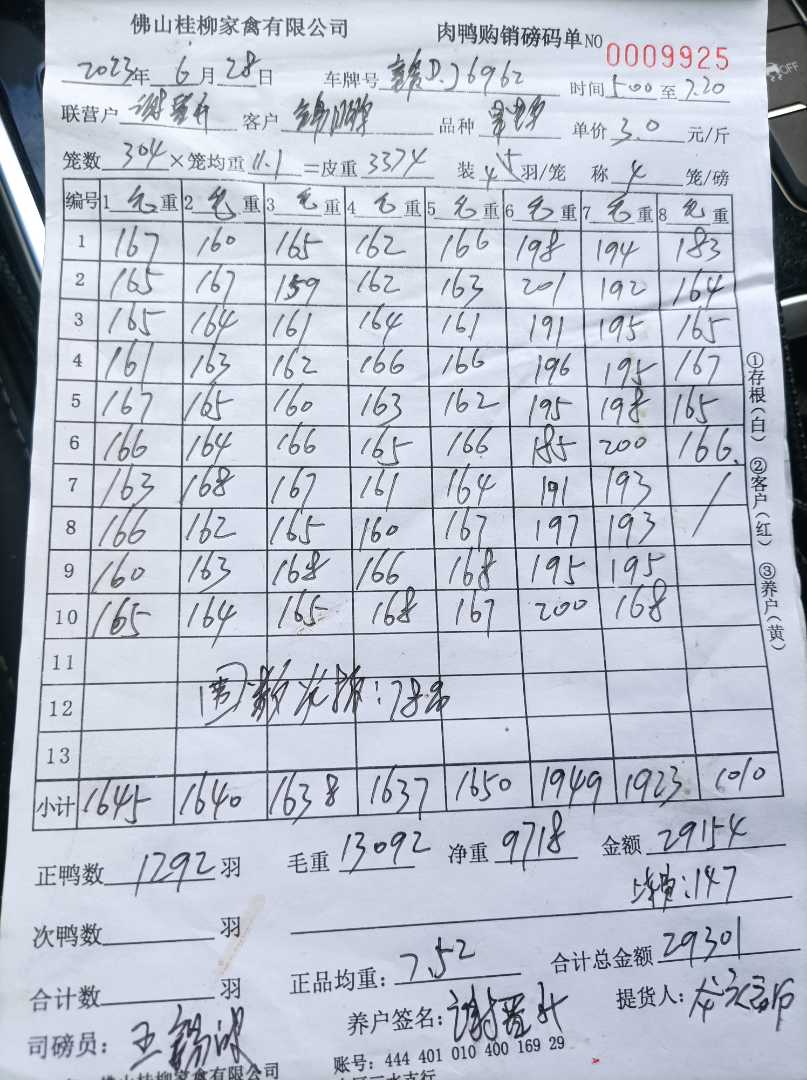 佛山桂柳家禽有限公司 肉鸭购销磅码单 NO 0009925
2023年 6月 28日 车牌号 D.J6962 时间 500 至 7.20
联营户 客户 品种 单价 3.0 元/斤
笼数 304 ×笼均重 11.1 =皮重 3374 装 4 5 羽/笼 称 4 笼/磅
编号 1 毛重 2 毛重 3 毛重 4 毛重 5 毛重 6 毛重 7 毛重 8 毛重
1 167 160 165 162 166 198 194 183
2 165 167 159 162 163 201 192 164
3 165 164 161 164 161 191 195 165
4 161 163 162 166 166 196 195 167
5 167 165 160 163 162 195 198 165
6 166 164 166 165 166 185 200 166
7 163 168 167 161 164 191 193 /
8 166 162 165 160 167 197 193
9 160 163 168 166 168 195 195
10 165 164 165 168 167 200 168
11
12 :78
13
小计 1645 1640 1638 1637 1650 1949 1923 1010
正鸭数 1292 羽 毛重 13092 净重 9718 金额 29154
:147
次鸭数 羽
正品均重: 7.52 合计总金额 29301
合计数 羽
司磅员: 王锡 养户签名: 谢 提货人:
佛山桂柳家禽有限公司 账号: 444 401 010 400 169 29
①存根(白) ②客户(红) ③养户(黄)
OFF